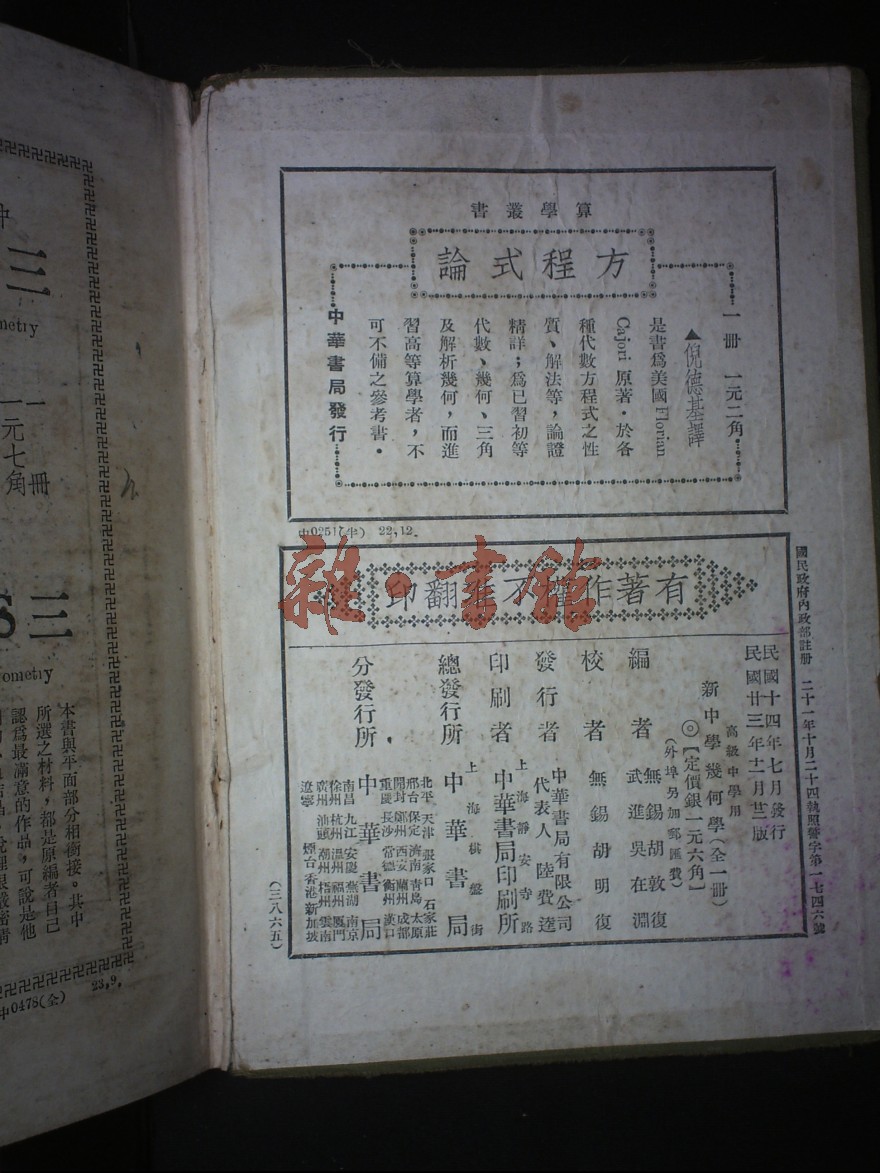 算學叢書
方程式論
一冊 一元二角
▲倪德基譯
是書爲美國Florian
Cajori 原著・於各
種代數方程式之性
質、解法等，論證
精詳；爲已習初等
代數、幾何、三角
及解析幾何，而進
習高等算學者，不
可不備之參考書・
中華書局發行
中0251(半) 22,12.
國民政府內政部註册 二十一年十月二十四執照警字第一七四六號
有著作權不准翻印
民國十四年七月發行
民國廿三年十二月廿三版
高級中學用
新中學幾何學(全一冊)
◎【定價銀一元六角】
(外埠另加郵匯費)
編者 無錫胡敦復
武進吳在淵
校者 無錫胡明復
發行者 中華書局有限公司
代表人 陸費逵
印刷者 上海靜安寺路
中華書局印刷所
總發行所 上海棋盤街
中華書局
分發行所 中華書局
北平 天津 張家口 石家莊
邢台 保定 濟南 青島 太原
開封 鄭州 西安 蘭州 成都
重慶 長沙 常德 衡州 漢口
南昌 九江 安慶 蕪湖 南京
徐州 杭州 溫州 福州 廈門
廣州 汕頭 潮州 梧州 雲南
遼寧 煙台 香港 新加坡
(三八六五)
雜·書館
中
三
metry
一冊
一元七角
S三
ometry
本書與平面部分相銜接。其中
所選之材料，都是原編者自己
認爲最滿意的作品，可說是他
中0478(全) 23,9.